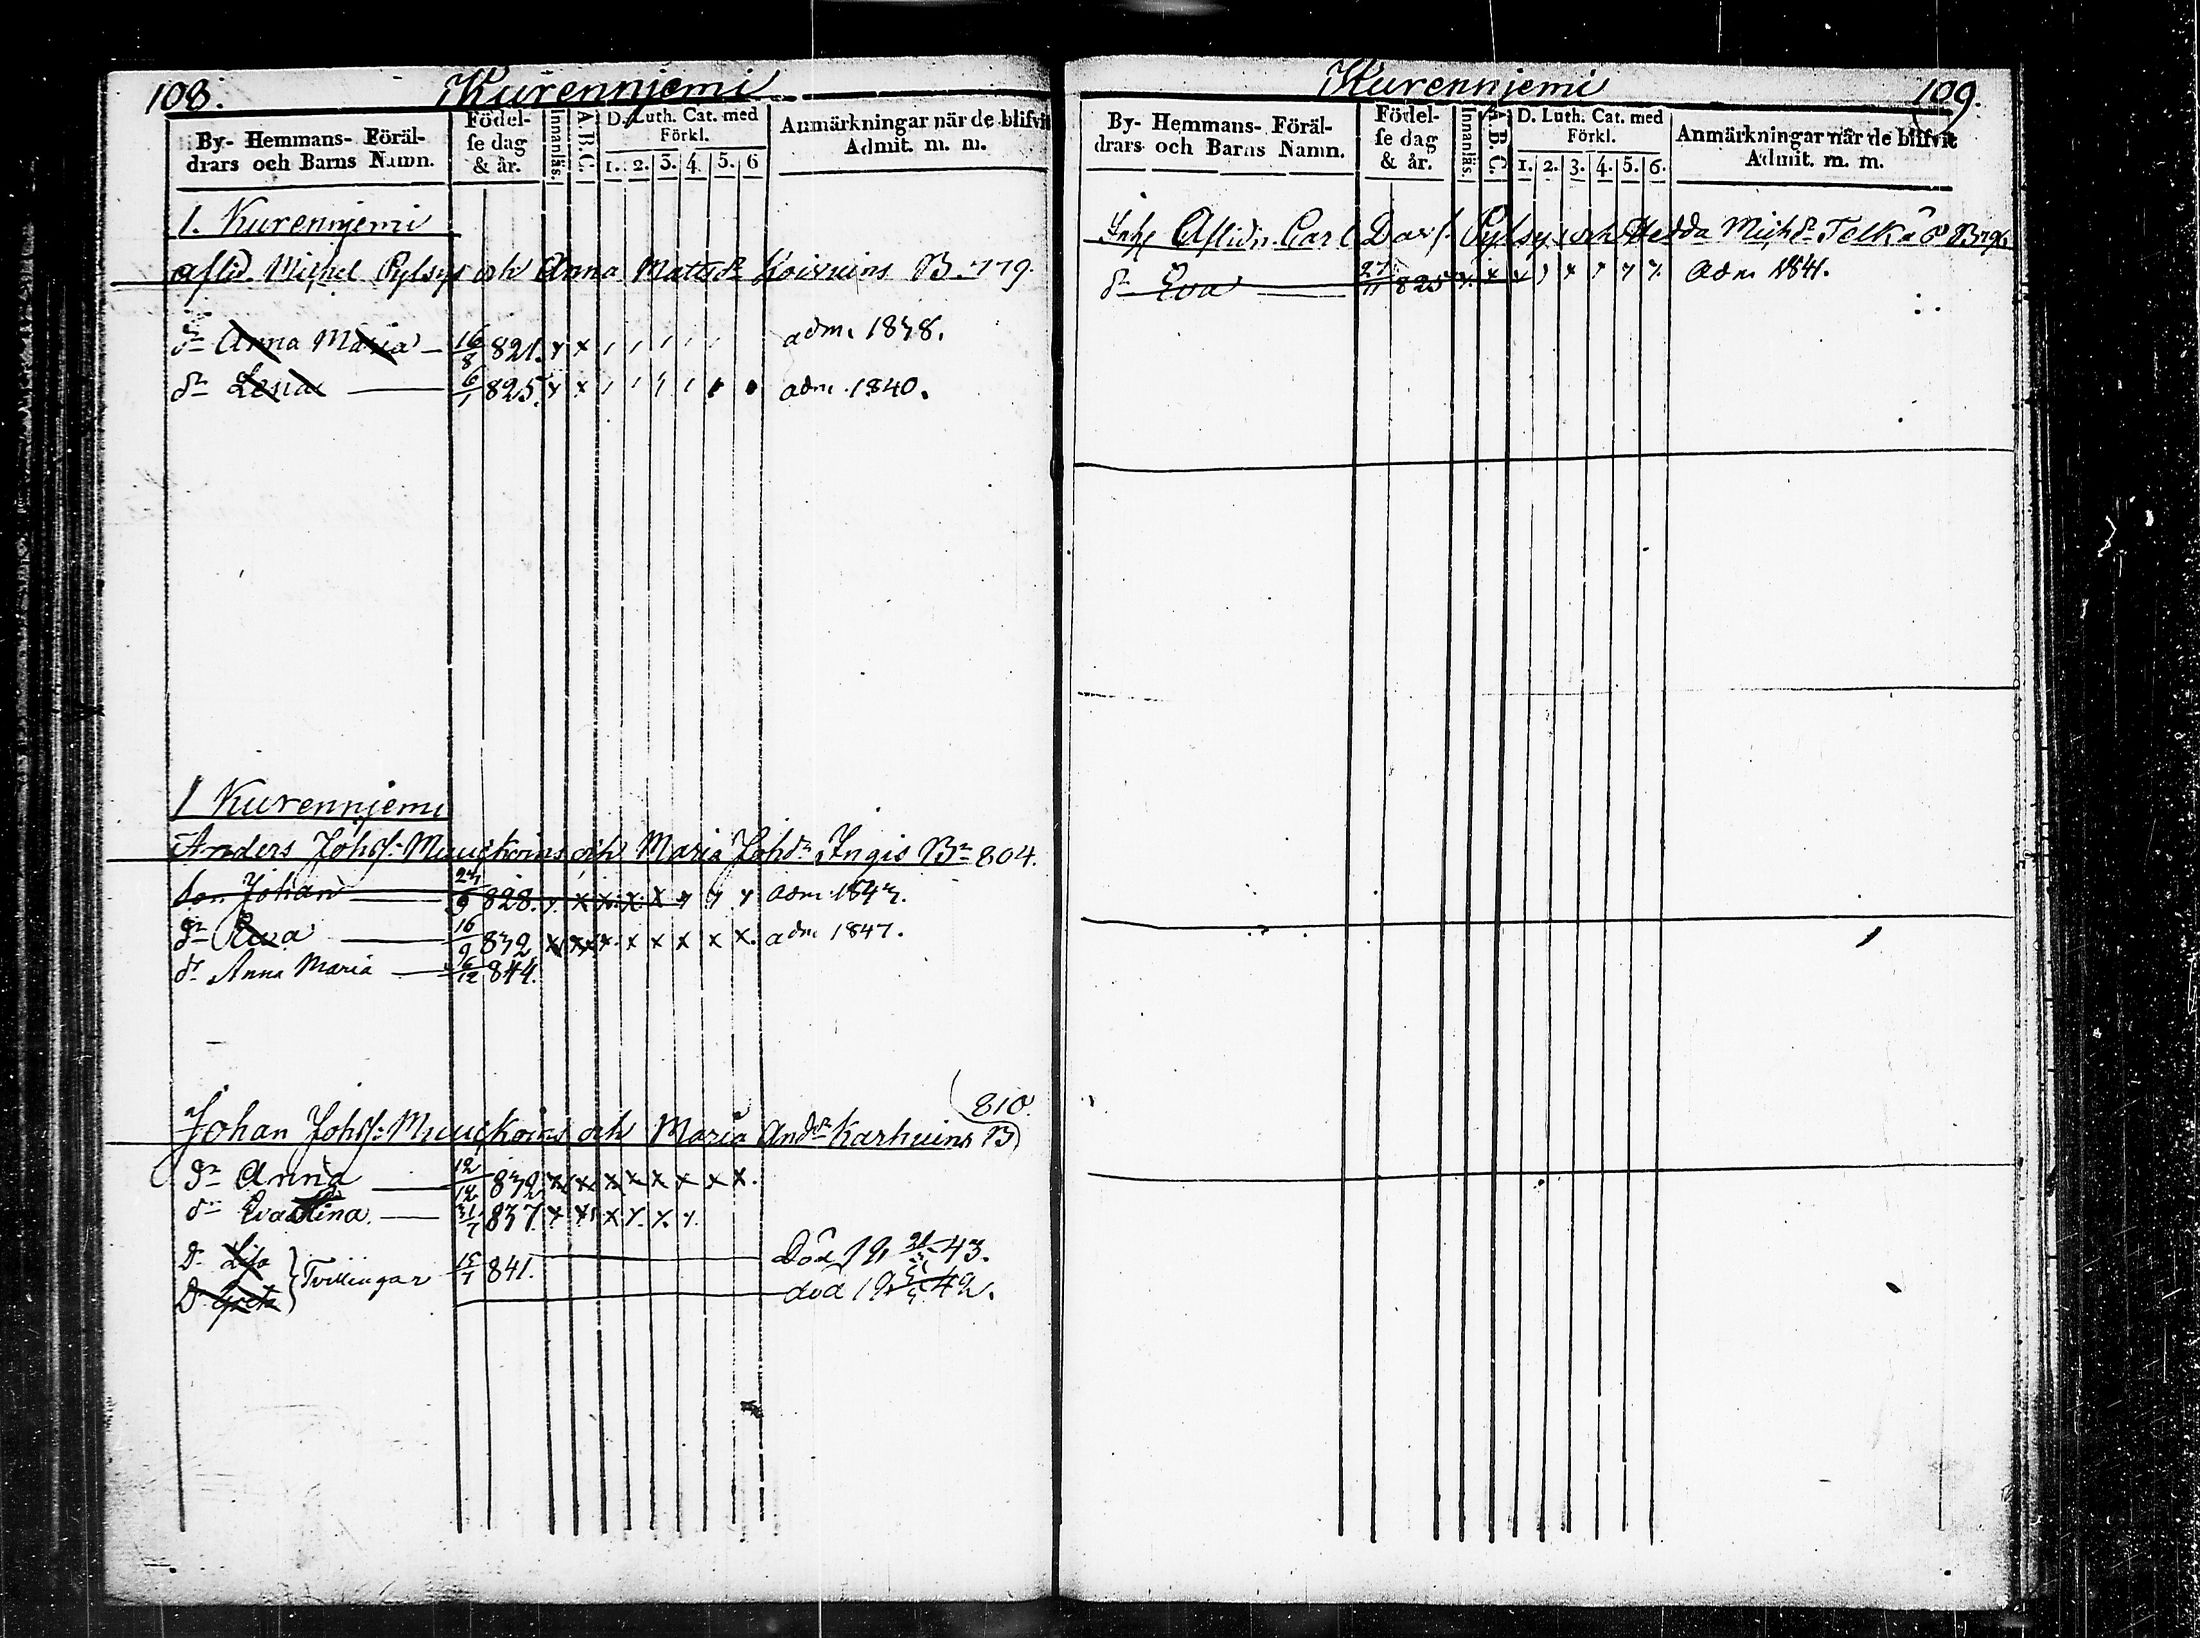 108.
Kurennjemi
By- Hemmans- Föräl-
drars och Barns Namn.
Födel-
se dag
& år.
Innanläs.
A.B.C.
D. Luth. Cat. med
Förkl.
1. 2. 3. 4. 5. 6
Anmärkningar när de blifvit
Admit. m. m.
1. Kurennjemi
aflid. Michel Pylsys och Anna Mattsdr Koivuins B. 779.
dr Anna Maria 16/8 821. adm. 1838.
dr Lena 6/1 825. adm. 1840.
1 Kurennjemi
Anders Johs: Muuckoins och Maria Johdr Ingis Bn 804.
son Johan 828. adm. 1843.
dr Eva 16/9 832 adm 1847.
dr Anna Maria 16/12 844.
810.
Johan Johs: Muuckoins och Maria Andsdr Karhuins B
dr Anna 12/12 832
dr Eva Stina. 31/7 837
Dr Lisa
Tvillingar 15/7 841. Död 43.
D Greta död 42.
Kurennjemi
109.
By- Hemmans- Föräl-
drars och Barns Namn.
Födel-
se dag
& år.
Innanläs.
A.B.C.
D. Luth. Cat. med
Förkl.
1. 2. 3. 4. 5. 6.
Anmärkningar när de blifvit
Admit. m. m.
Inh Aflidn. Carl Davs. Pylsys och Hedda Michdr Tolkå B796
dr Eva 27/11 825 adm 1841.